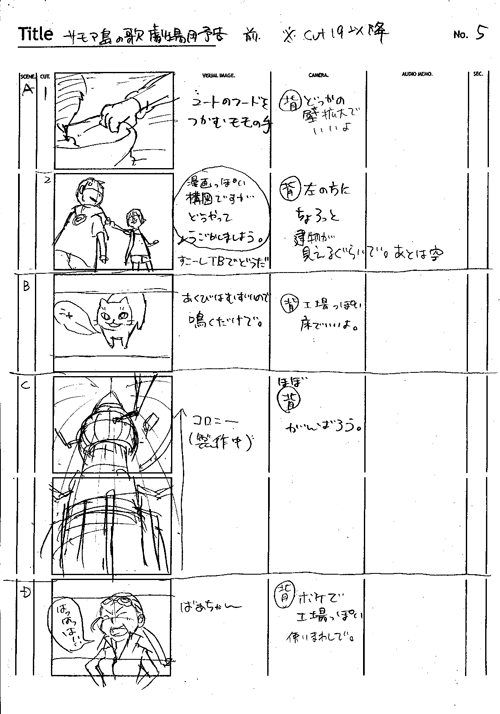 Title サモア島の歌 劇場用予告 前 ※ cut 19以降 No. 5
SCENE. CUT. VISUAL IMAGE. CAMERA. AUDIO MEMO. SEC.
A 1
コートのフードを
つかむモモの手
背 どっかの
壁拡大で
いいよ
2
漫画っぽい
構図ですが
どうやって
うごかしましょう。
すこーしTBでどうだ
背 左のちに
ちょろっと
建物が
見えるぐらいで。あとは空
B
ニャ
あくびはむずいので
鳴くだけで。
背 工場っぽい
床でいいよ。
C
コロニー
(製作中)
ほぼ
背
がんばろう。
D
はっ
はっ
はっ
ばあちゃん
背 ボケで
工場っぽい
使いまわしで。